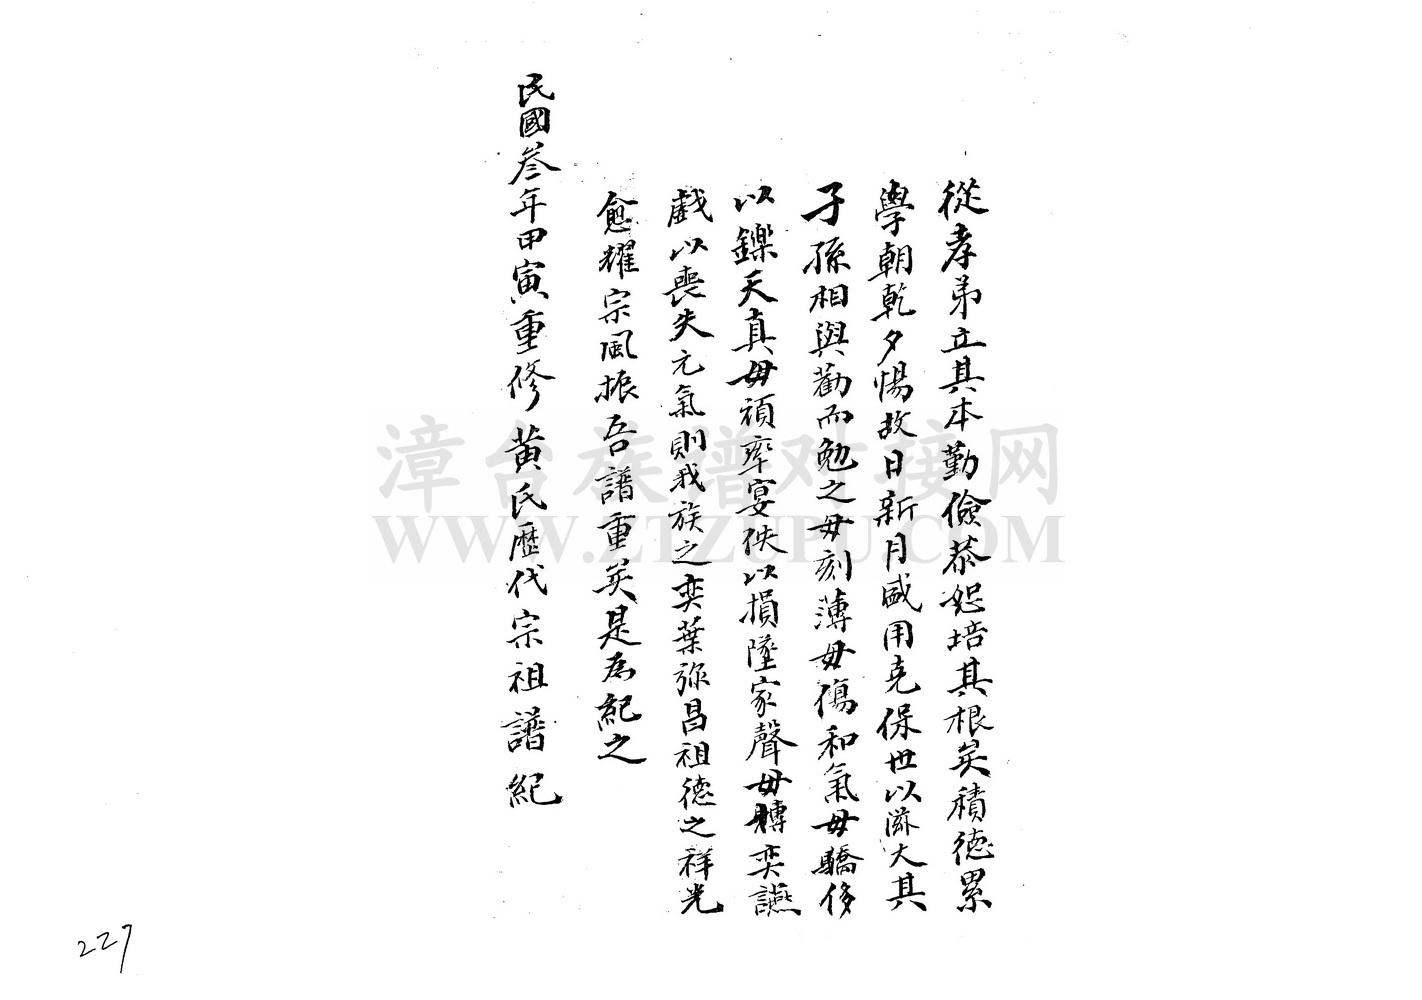 從孝弟立其本勤儉恭恕培其根矣積德累
學朝乾夕惕故日新月盛用克保世以滋大其
子孫相與勸而勉之毋刻薄毋傷和氣毋驕侈
以鑠天真毋頑率宴佚以損墜家聲毋賻奕讌
戲以喪失元氣則我族之奕葉弥昌祖德之祥光
愈耀宗風振吾譜重矣是為紀之
民國叁年甲寅重修黃氏歷代宗祖譜紀
漳台族谱对接网
WWW.ZTZUPU.COM
227